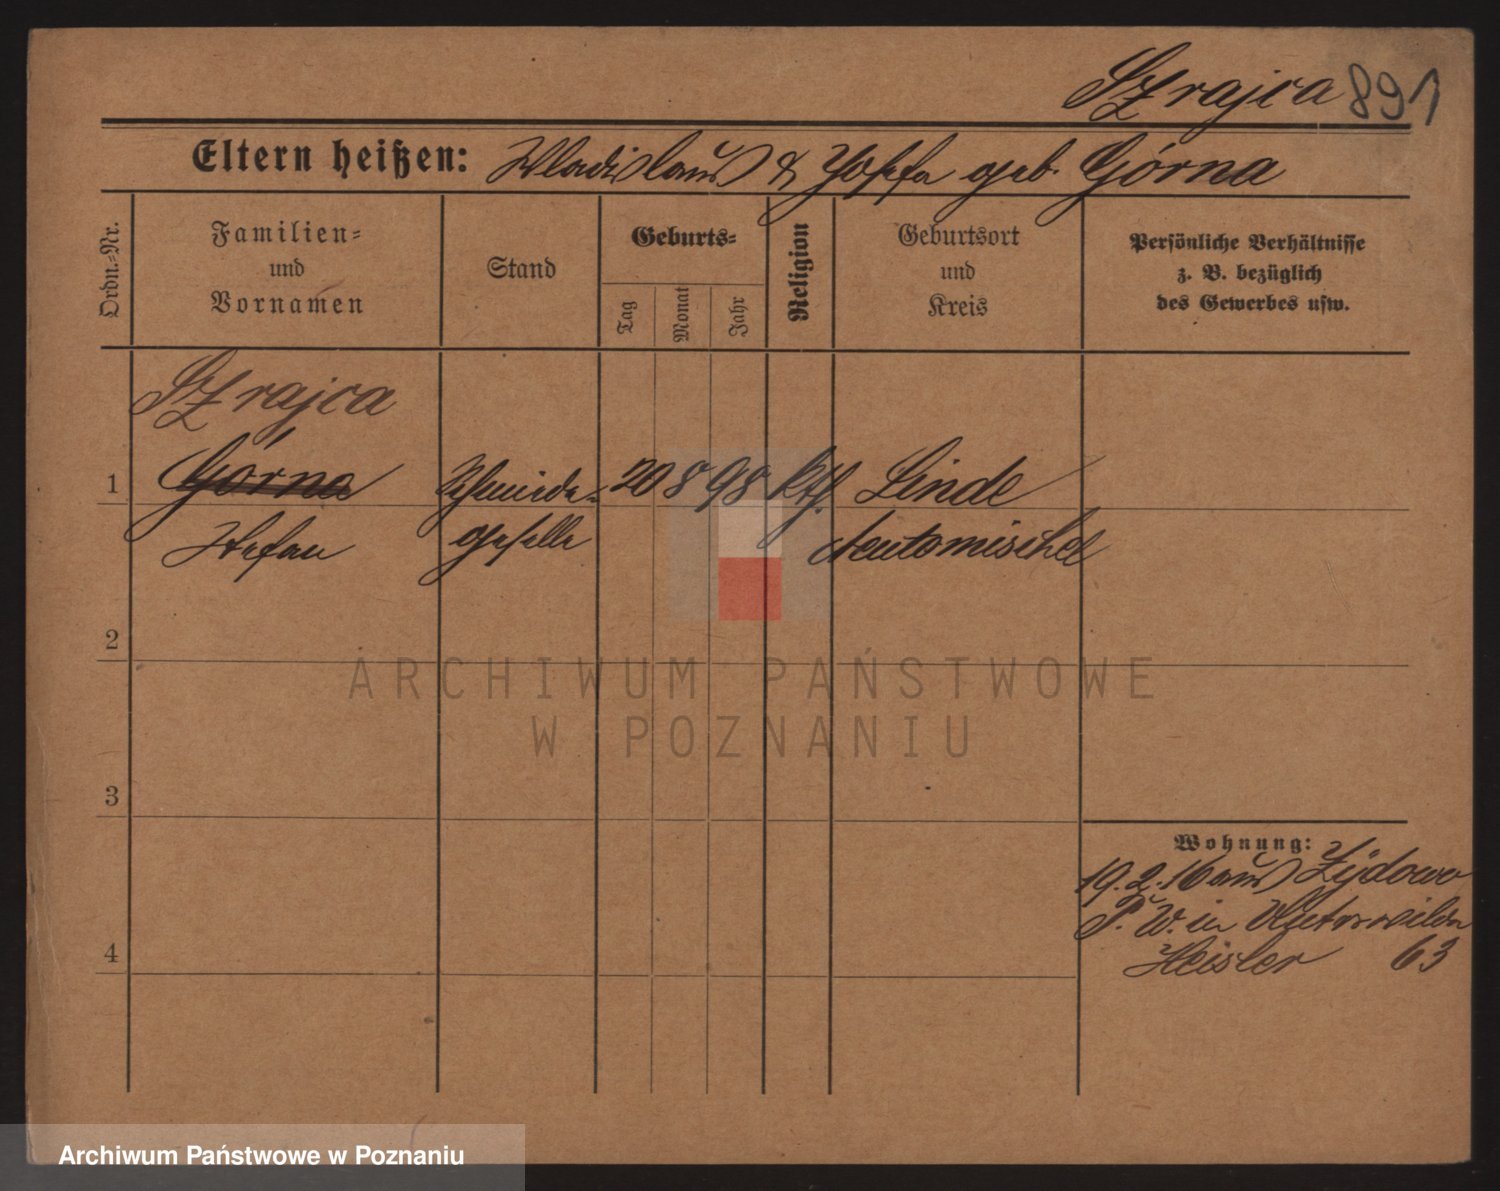 Szrajca 891
Eltern heißen: Wladislaus & Josefa geb. Górna
Ordn.-Nr.
Familien-
und
Vornamen
Stand
Geburts-
Tag
Monat
Jahr
Religion
Geburtsort
und
Kreis
Persönliche Verhältnisse
z. B. bezüglich
des Gewerbes usw.
Szrajca
1 Górna Schmiede- 20 8 98 kth. Linde
Stefan geselle Neutomischel
2
ARCHIWUM PAŃSTWOWE
W POZNANIU
3
Wohnung:
19.2.16 aus Żydowo
P. W. in Unterwilda
4
Heisler 63
Archiwum Państwowe w Poznaniu